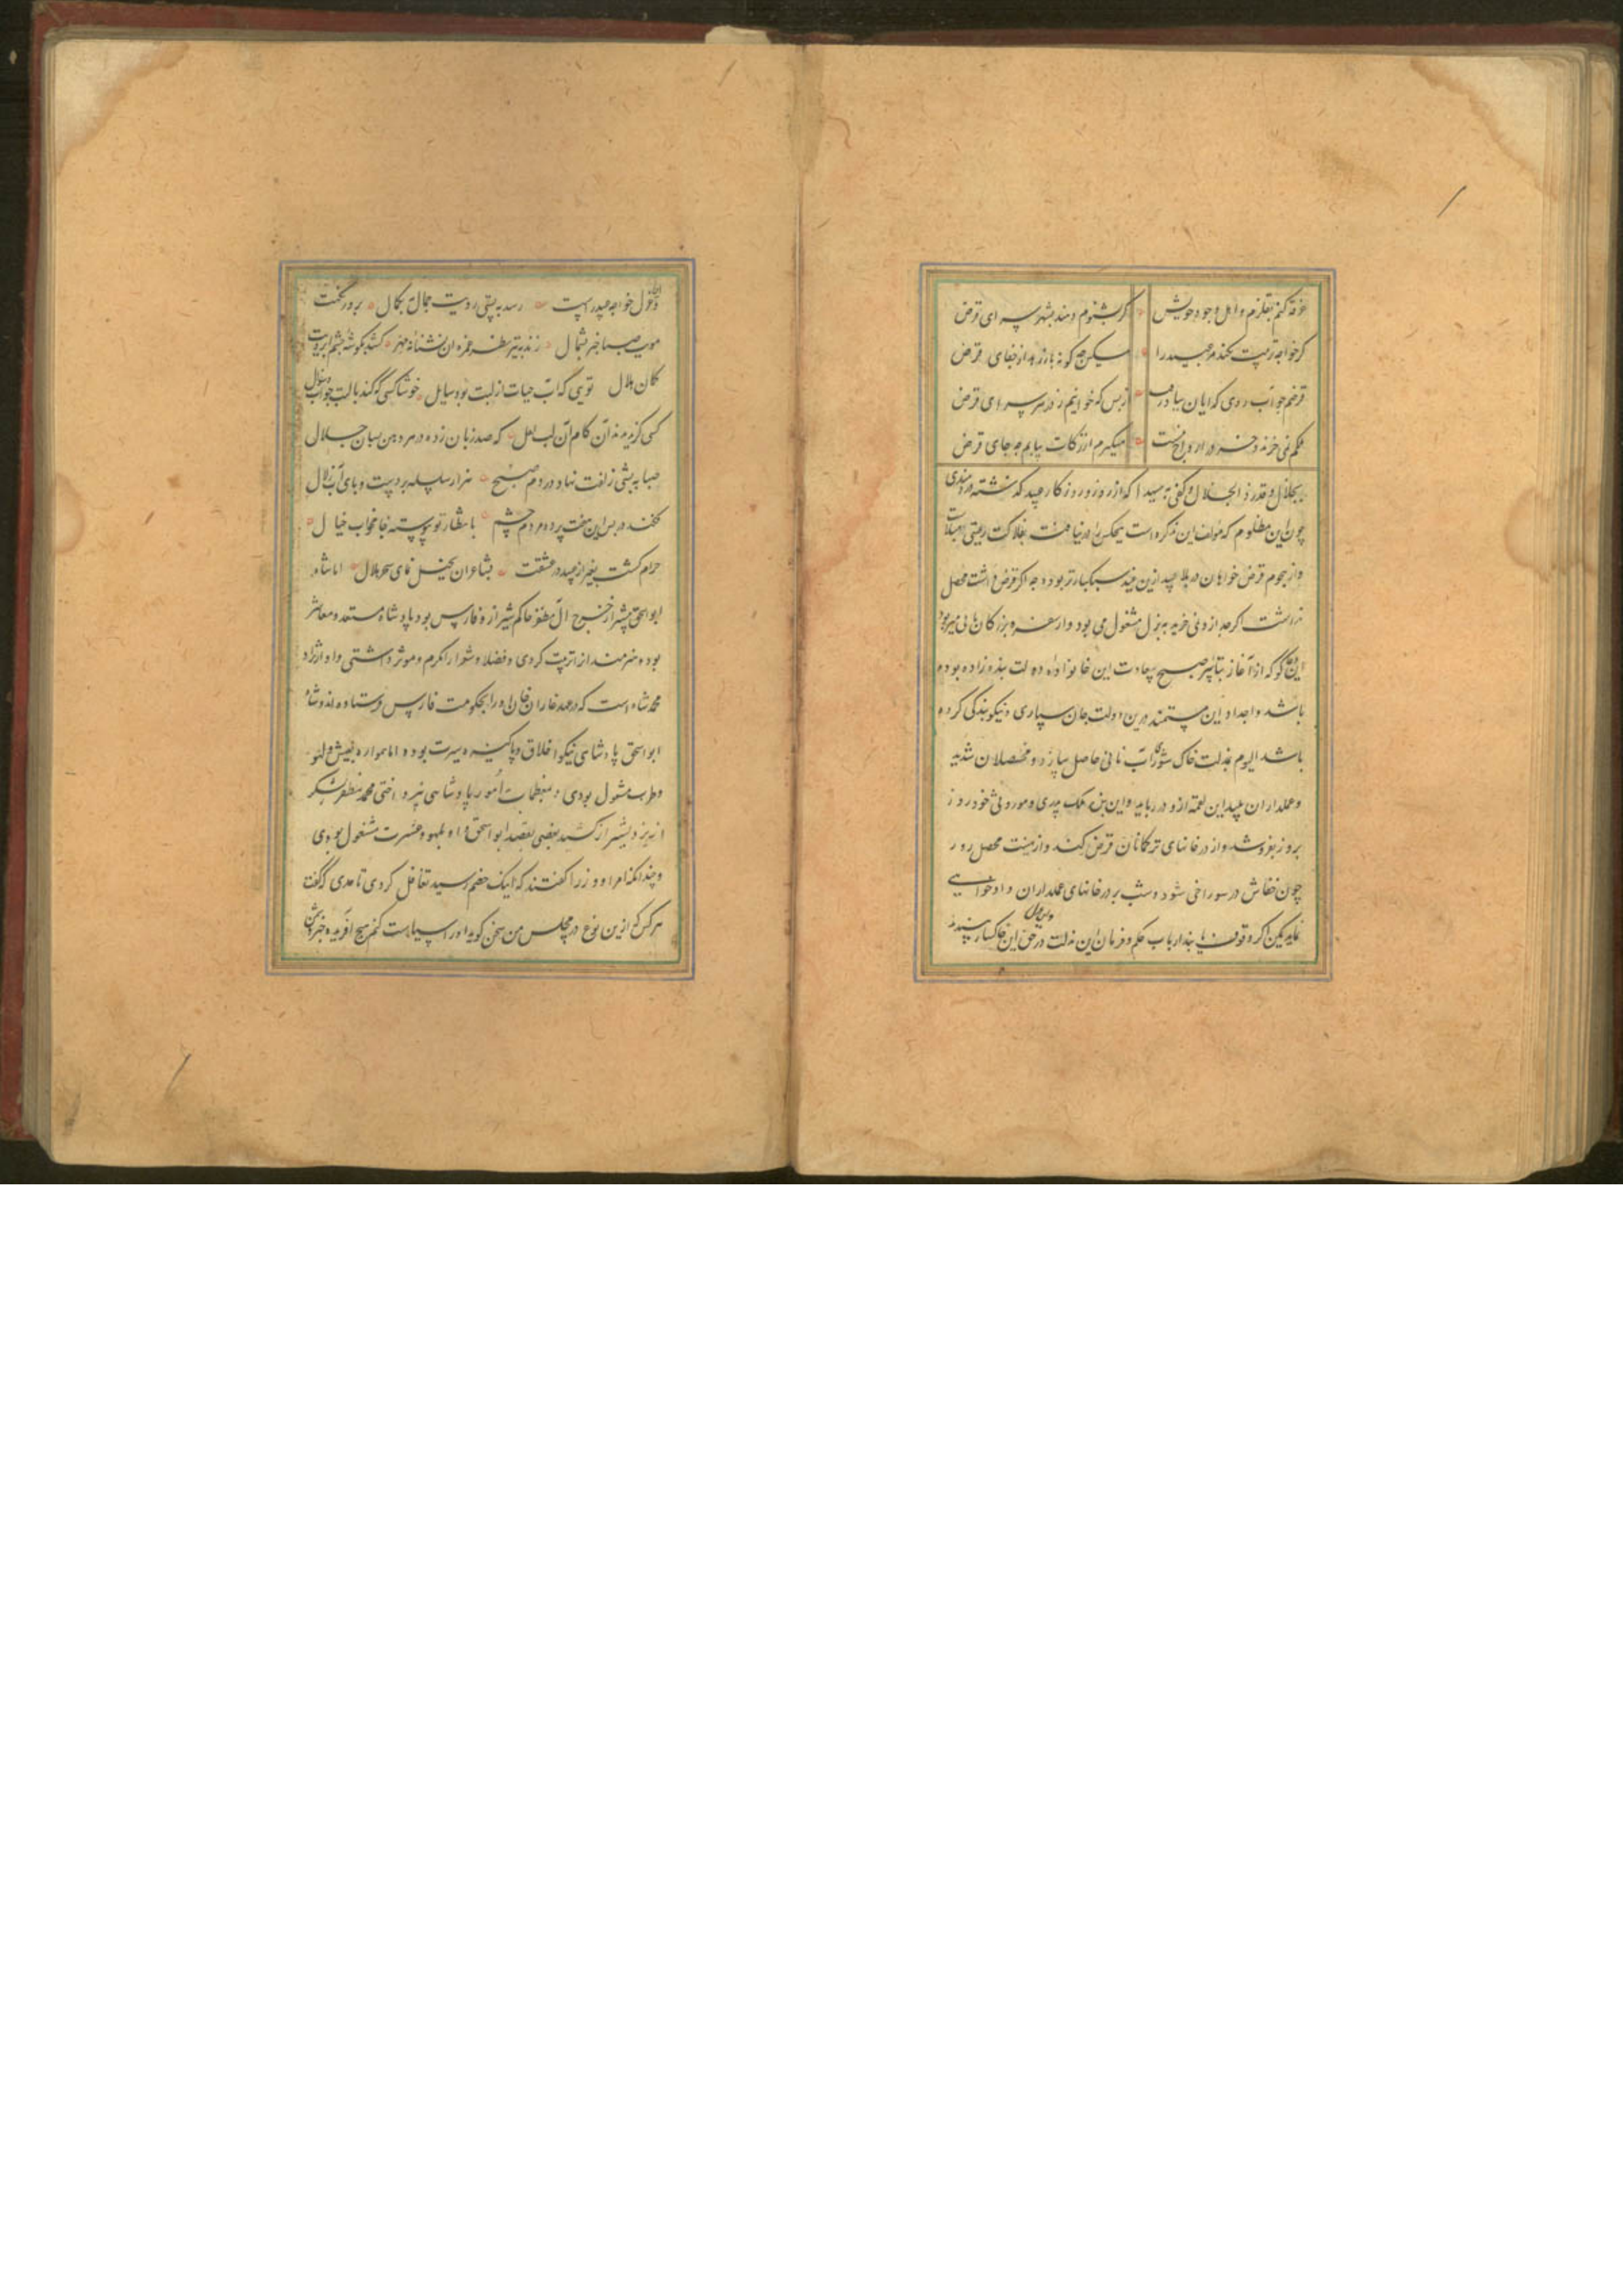 غرقه کنم بقلزم و نیل وجود خویش کر بشنوم دهند بشهر سرای قرض
کر خواجه تربیت نکند مر عبید را مسکین چه کونه باز رهد از جفای قرض
از بس که خواهم ز در هر سرای قرض
میکیرم از زکات بیابم چه جای قرض
بجلال و قدر ذو الجلال و کفی به شهیدا که از روز و روزکار عبید که شته در رندی
چون این مظلوم که مؤلف این تذکره است هیچکس را در دنیا محنت بفلاکت رعیتی مبتلا
و از هجوم قرض خواهان در بلا عبید ازین بنده سبکبارتر بوده چه اکر قرض داشت محصل
نداشت اکرچه از دنی خریه بهزل مشغول می بود و از سفره بزرکان نانی میربود
کو که از آغاز تباشیر صبح سعادت این خانواده دولت بنده زاده بوده
باشد و اجداد این مستمند درین دولت جان سپاری و نیکو بندکی کرده
باشد الیوم بمذلت خاک شوراب نانی حاصل سازد و محصلان شدید
و عملداران پلید این لقمه ازو در رباید و این بنده ملک پدری و موروثی خود روز
بروز بفروشد و از در خانهای ترکمانان قرض کند و از هیبت محصل روز
چون خفاش در سوراخی شود و شب بر در خانهای عملداران دادخواهی
نماید یکن اکر وقوف یابند ارباب حکم و فرمان این مذلت در حق این خاکسار نپسندند
غزل خواجه عبید راست رسد به پستی رویت جمال بکمال
مویت صبا خبر شمال زند بتیر نظر غمزه ات نشانه مهر کشد بکوشه چشم ابرویت
کمان هلال تویی که آب حیات از لبت بود سایل خوشا کسی که کند با لبت جواب و سؤال
کسی کزیده نداند کام آن لب لعل که صد زبان زده در هر دهن بسان خلال
صبا به پشتی زلفت نهاد در دم صبح هزار سلسله بر دست و پای آب زلال
فکنده در پس این هفت پرده مردم چشم بانتظار تو پیوسته جامه خواب خیال
حرام کشت بغیر از عبید در عشقت بشاعران تخیل نمای سحر حلال اما شاه
ابو اسحق پیشتر از خروج آل مظفر حاکم شیراز و فارس بود پادشاه مستعد و معاشر
بود و هنرمندانرا تربیت کردی و فضلا و شعرا را مکرم و موثر داشتی و او از نژاد
محمد شاه است که در عهد غازان خان او را بحکومت فارس فرستاده اند و شاه
ابو اسحق پادشاهی نیکو اخلاق و پاکیزه سیرت بوده اما همواره بعیش و لهو
و طرب مشغول بودی و بمعظمات امور پادشاهی نپرداختی محمد مظفر لشکر
از یزد بشیراز کشید یعنی بقصد ابو اسحق و او بلهو و عشرت مشغول بودی
و چندانکه امرا و وزرا کفتند که اینک خصم رسید تغافل کردی تا حدی که کفت
هرکس که ازین نوع در مجلس من سخن کوید او را سیاست کنم هیچ آفریده خبر دشمن